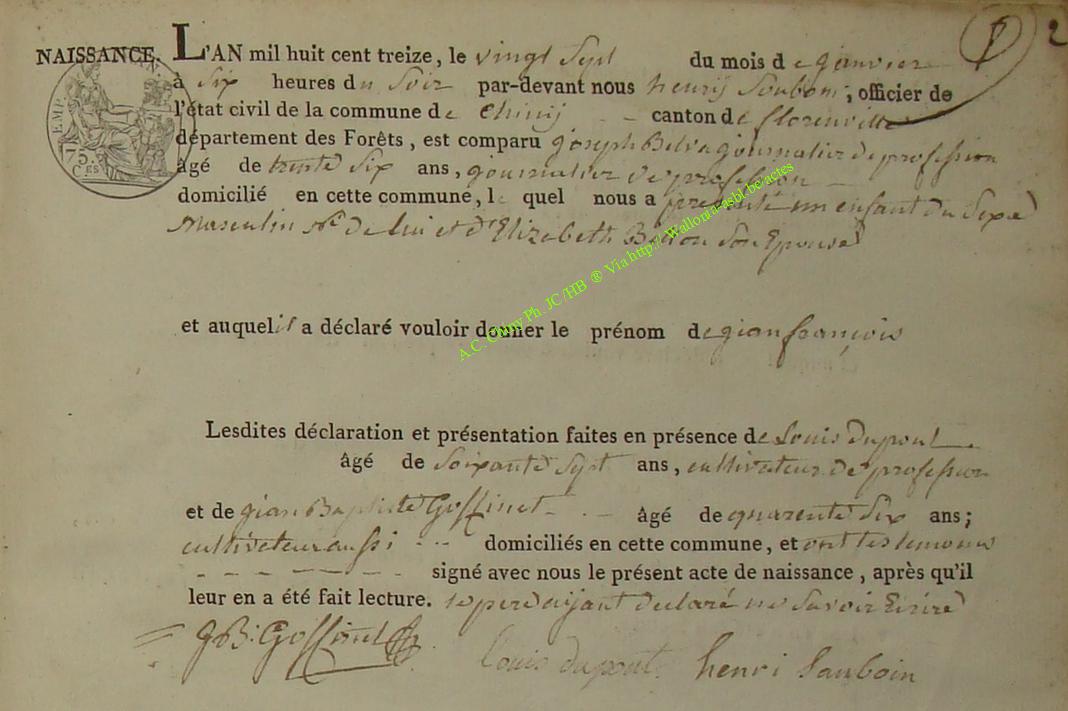 2
NAISSANCE. L'AN mil huit cent treize, le vingt Sept du mois de genvier
à Six heures du Soir par-devant nous henrij Sauboin, officier de
l'état civil de la commune de Chinij -- canton de florenville
département des Forêts, est comparu goseph Belva gournalier de profession
âgé de trente Six ans, gournalier de profession
domicilié en cette commune, lequel nous a presenté un enfant du Sexe
Masculin né de lui et d'Elizabeth Bodson Son Epouse
et auquel il a déclaré vouloir donner le prénom de gian françois
Lesdites déclaration et présentation faites en présence de Louis dupont
âgé de Soixante Sept ans, cultivateur de profession
et de gian Baptiste Goffinet -- âgé de quarente Six ans;
cultivateur aussi -- domiciliés en cette commune, et ont les temoins
signé avec nous le présent acte de naissance, après qu'il
leur en a été fait lecture. le pere aijant declaré ne Savoir Ecrire
gB: Goffinet Louis dupont henri Sauboin
EMP.
75.
CES
A.C. Chiny Ph. JC /HB ® Via http:// Wallonia-asbl.be/actes